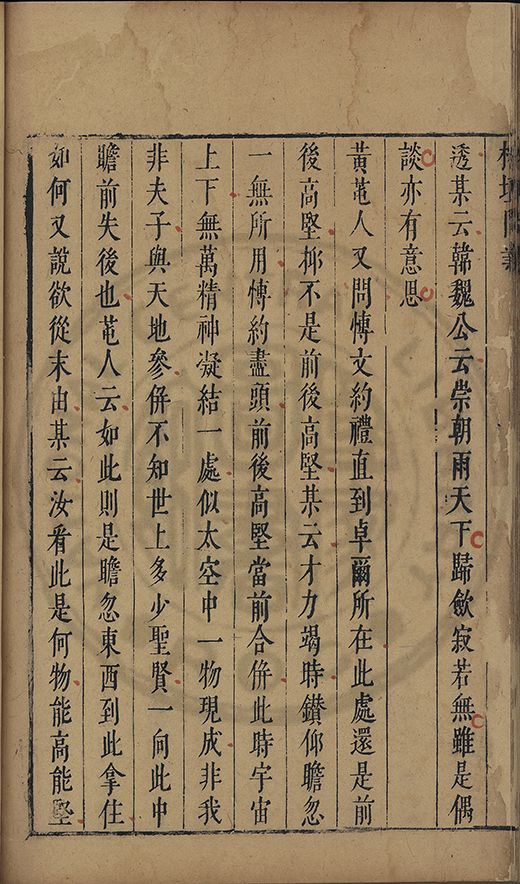 榕壇問業
透某云韓魏公云崇朝雨天下歸斂寂若無雖是偶
談亦有意思
黃芘人又問慱文約禮直到卓爾所在此處還是前
後高堅抑不是前後高堅某云才力竭時鑚仰瞻忽
一無所用慱約盡頭前後高堅當前合併此時宇宙
上下無萬精神凝結一處似太空中一物現成非我
非夫子與天地參併不知世上多少聖賢一向此中
瞻前失後也芘人云如此則是瞻忽東西到此拿住
如何又說欲從末由某云汝看此是何物能高能堅